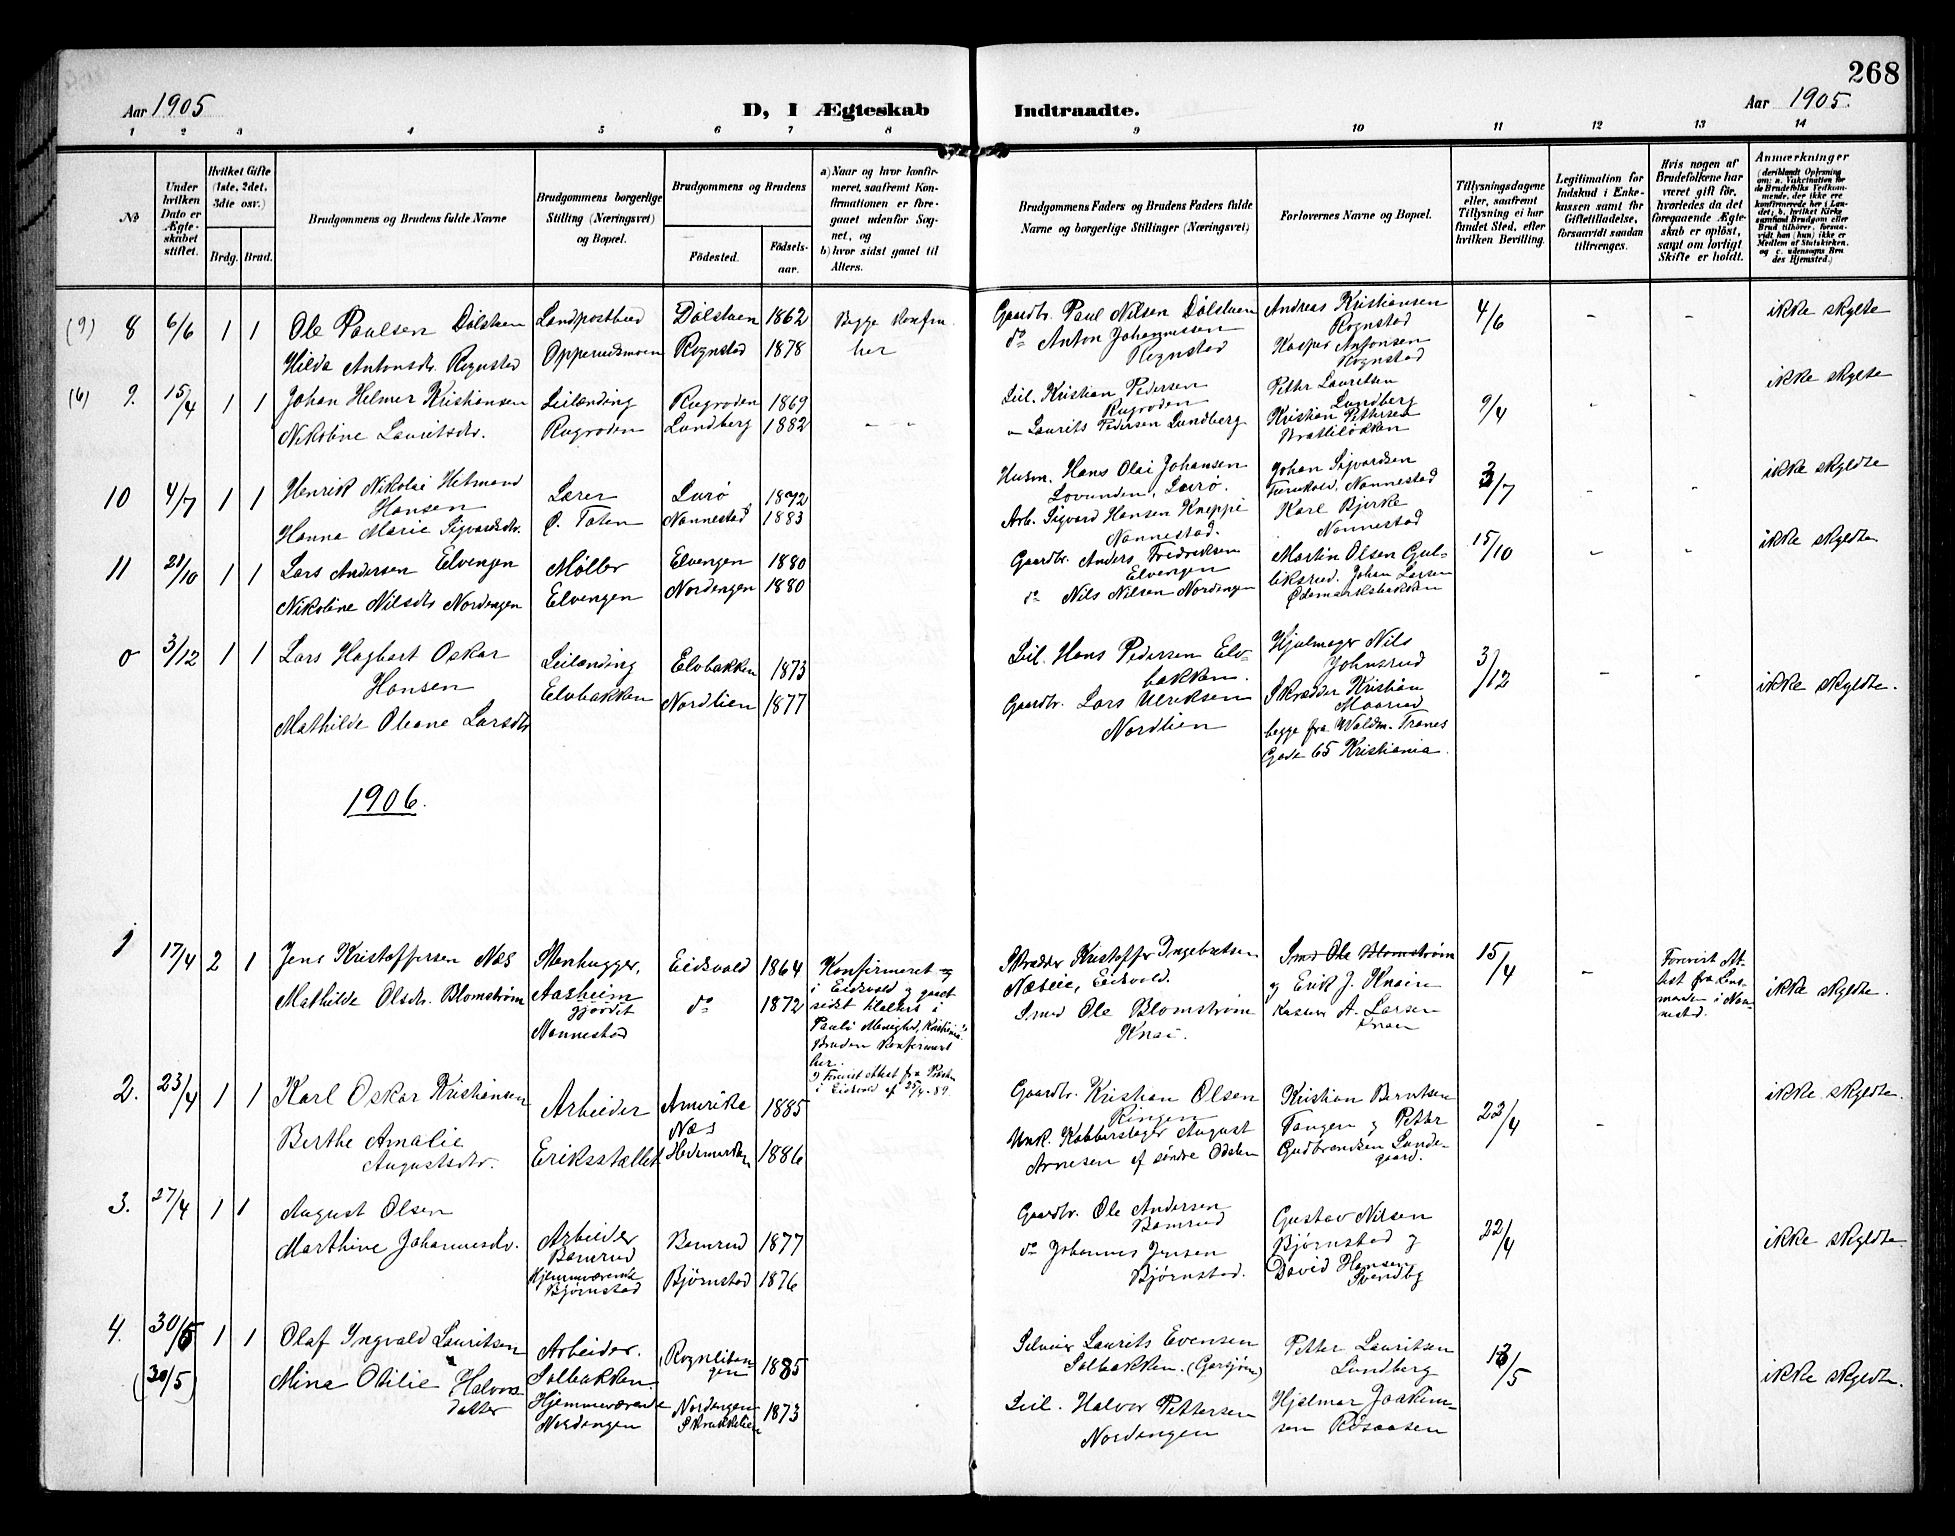 268
Aar 1905
D, I Ægteskab Indtraadte.
Aar 1905.
1 2 3 4 5 6 7 8 9 10 11 12 13 14
№
Under hvilken Dato er Ægteskabet stiftet.
Hvilket Gifte (1ste, 2det, 3die osv.)
Brdg. Brud.
Brudgommens og Brudens fulde Navne
Brudgommens borgerlige Stilling (Næringsvei) og Bopæl.
Brudgommens og Brudens
Födested.
Födselsaar.
a) Naar og hvor konfirmeret, saafremt Konfirmationen er foregaaet udenfor Sognet, og
b) hvor sidst gaaet til Alters.
Brudgommens Faders og Brudens Faders fulde Navne og borgerlige Stillinger (Næringsvei)
Forlovernes Navne og Bopæl.
Tillysningsdagene eller, saafremt Tillysning ei har fundet Sted, efter hvilken Bevilling.
Legitimation for Indskud i Enkekassen samt for Giftetilladelse, forsaavidt saadan tiltrænges.
Hvis nogen af Brudefolkene har været gift för, hvorledes da det foregaaende Ægteskab er oplöst, samt om lovligt Skifte er holdt.
Anmærkninger
(deriblandt Oplysning om: a. Vakcination for de Brudefolks Vedkommende, der ikke ere konfirmerede her i Landet; b. hvilket Kirkesamfund Brudgom eller Brud tilhörer, forsaavidt han (hun) ikke er Medlem af Statskirken, og c. udensogns Brudes Hjemsted.)
(9) 8 6/6 1 1 Ole Paulsen Dølstuen Landpostbud Dølstuen 1862 Begge konfm. Gaardbr. Paul Nilsen Dølstuen Andreas Kristiansen Rognstad 4/6 - - ikke skyldte
Hilda Antonsdr. Rognstad Opperudsmoen Rognstad 1878 her do Anton Johannessen Rognstad Kasper Antonsen Rognstad
(6) 9. 15/4 1 1 Johan Helmer Kristiansen Leilænding Rugroden 1869 Leil. Kristian Pedersen Rugroden Petter Lauritsen Lundberg 9/4 - - ikke skylte
Nikoline Lauritsdr. Rugroden Lundberg 1882 - - " Laurits Pedersen Lundberg Kristian Pettersen Brattiløkken
10 4/7 1 1 Henrik Nikolai Hitmand Hansen Lærer Lurø 1872 Husm. Hans Olai Johansen Lovunden, Lurø. Johan Sigvardsen Nannestad 2/7 - - ikke skyldte
Hanna Marie Sigvardsdr. Ø. Toten Nannestad 1883 Arb. Sigvard Hansen Kneppe Nannestad. Karl Bjerke Nannestad
11 21/10 1 1 Lars Andersen Elvengen Møller Elvengen 1880 Gaardbr. Anders Fredriksen Elvengen Martin Olsen Gul- 15/10 - - ikke skyldte
Nikoline Nilsdtr Nordengen Elvengen Nordengen 1880 do Nils Nilsen Nordengen liksrud. Johan Larsen Ødemarksbakken
0 3/12 1 1 Lars Hagbart Oskar Hansen Leilænding Elvbakken 1873 Leil. Hans Pedersen Elvbakken. Hjulmager Nils Johnsrud 3/12 - - ikke skyldte.
Mathilde Oleane Larsdtr Elvbakken Nordlien 1877 Gaardbr. Lars Ulriksen Nordlien Skrædder Kristian Maarud
begge fra Waldm. Tranes Gade 65 Kristiania.
1906.
1 17/4 2 1 Jens Kristoffersen Næs Stenhugger, Eidsvold 1864 Konfirmeret i Eidsvold og gaaet sidst til alters i Pauli Menighed, Kristiania. Bruden konfirmert her. Forevist Attest fra Præsten i Eidsvold af 25/4-89. Skrædder Kristoffer Ingebretsen Næseie, Eidsvold. Smed Ole Blomstrøm 15/4 - Forevist Attest fra Lensmanden i Nannestad. ikke skyldte.
Mathilde Olsdr. Blomstrøm Aasheim Nannestad do 1872 Smed Ole Blomstrøm Knai. og Erik J. Knain A. Larsen Knai
2. 23/4 1 1 Karl Oskar Kristiansen Arbeider Amerika 1885 Gaardbr. Kristian Olsen Ringen Kristian Berntsen 22/4 - ikke skyldte.
Berthe Amalie Augustsdtr. Eriksstallet Næs Hedemarken 1886 Unk. Kobberslager August Arnesen af søndre Odalen Tangen og Petter Gudbrandsen Lundegaard.
3. 27/4 1 1 August Olsen Arbeider Bamrud Bamrud 1877 Gaardbr. Ole Andersen Bamrud Gustav Nilsen Bjørnstad og 22/4 ikke skyldte.
Marthine Johannesdr. Hjemmeværende Bjørnstad Bjørnstad 1876 do Johannes Jensen Bjørnstad. David Hansen Svendby
4. 30/5 1 1 Olaf Ingvald Lauritsen Arbeider. Solbakken. Rognlibængen 1885 Selveier Laurits Evensen Solbakken. (Garsjøen) Petter Lauritsen Lundberg 13/5 ikke skyldte.
(30/5) Mina Otilie Halvorsdatter Hjemmeværende Nordengen Nordengen 1873 Leil. Halvor Pettersen Nordengen Hjelmar Joakimsen Røsaasen